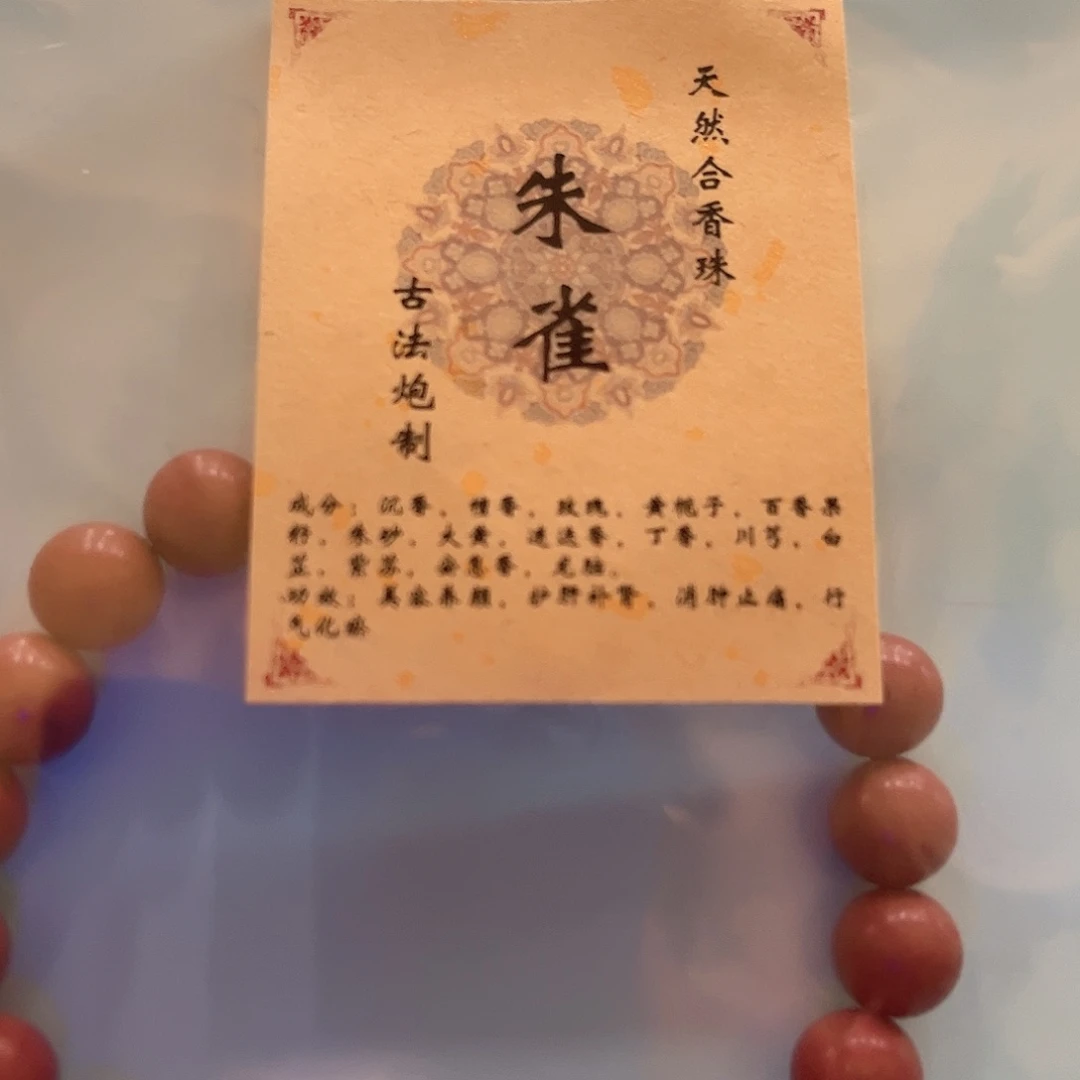 天然合香珠
朱雀
古法炮制
成分：沉香、檀香、玫瑰、黄栀子、百香果
籽、朱砂、大黄、迷迭香、丁香、川芎、白
芷、紫苏、安息香、龙脑。
功效：美容养颜、护肝补肾、消肿止痛、行
气化瘀